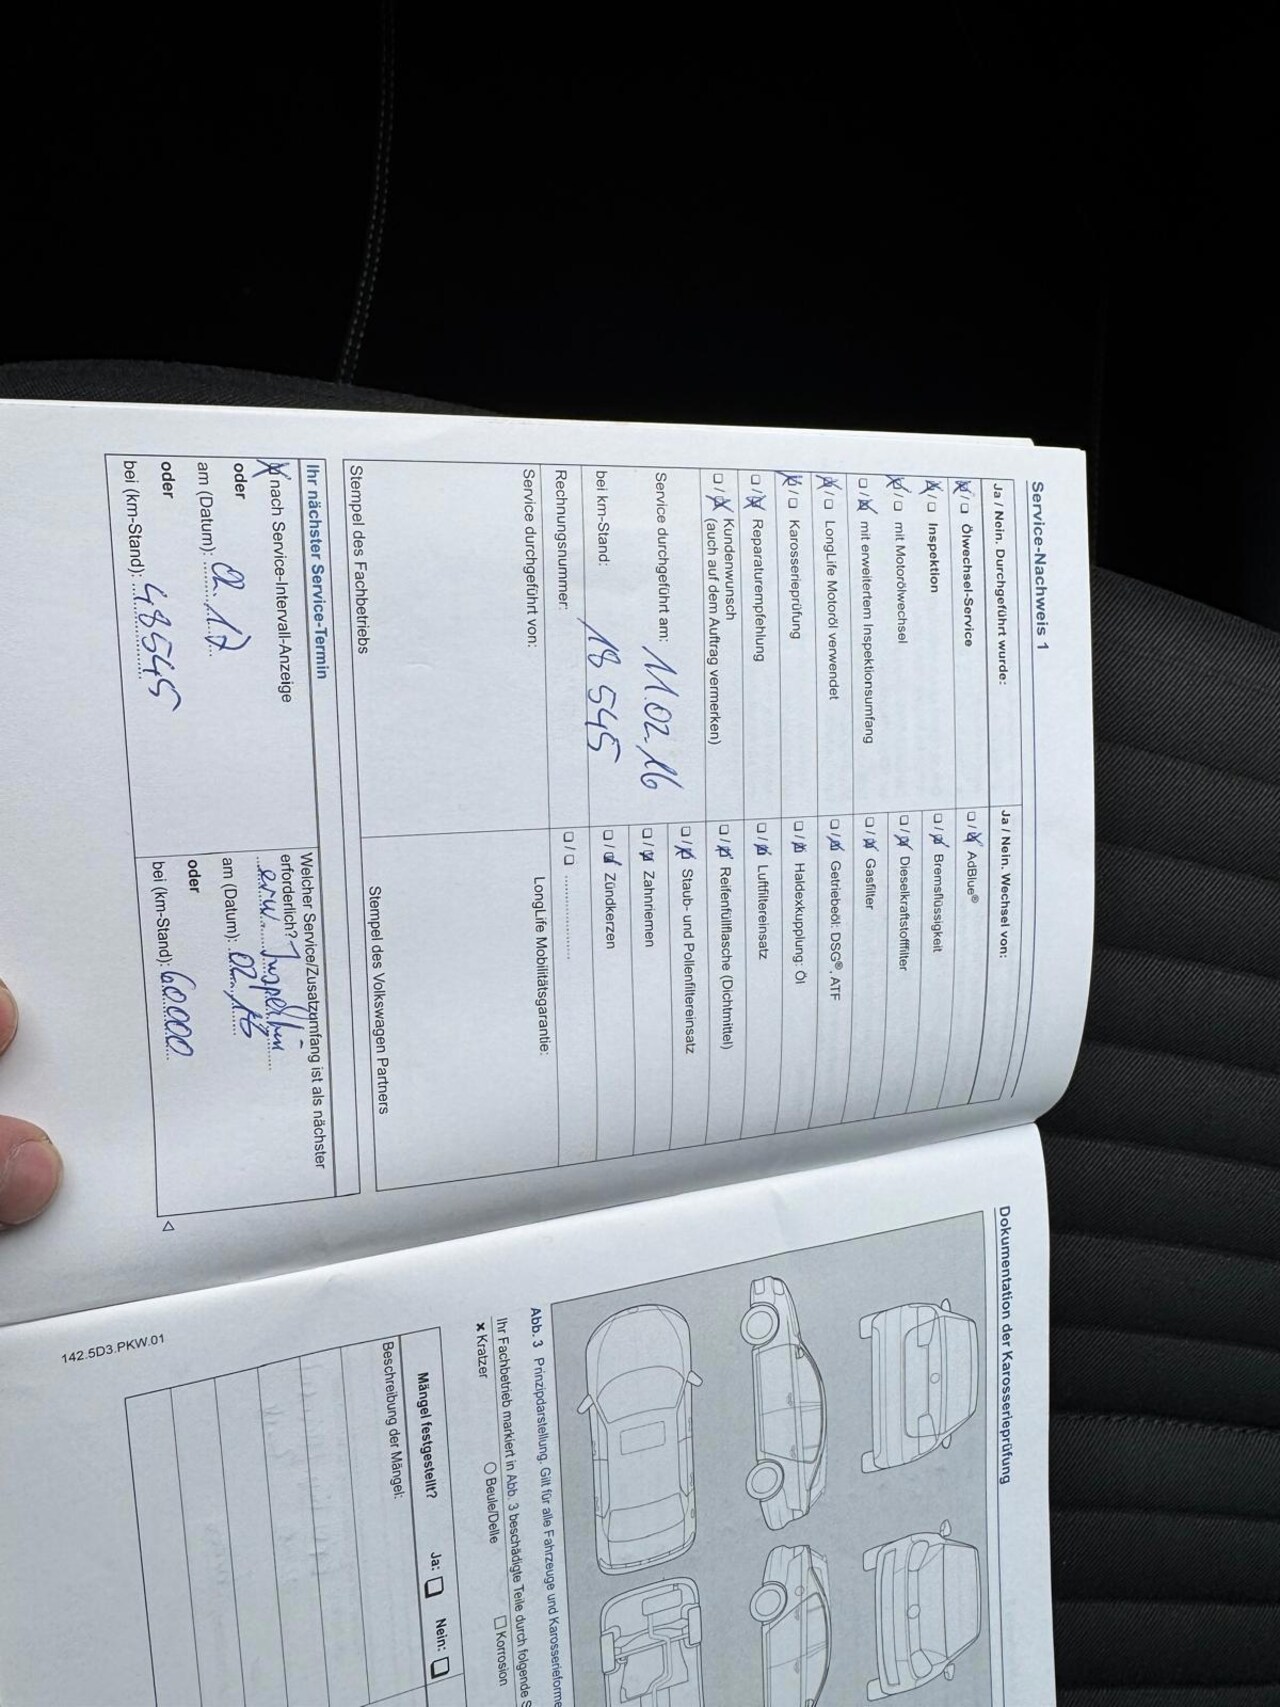 Service-Nachweis 1
Ja / Nein. Durchgeführt wurde:
☒ / ☐ Ölwechsel-Service
☒ / ☐ Inspektion
☒ / ☐ mit Motorölwechsel
☐ / ☒ mit erweitertem Inspektionsumfang
☒ / ☐ LongLife Motoröl verwendet
☒ / ☐ Karosserieprüfung
☐ / ☒ Reparaturempfehlung
☐ / ☒ Kundenwunsch
(auch auf dem Auftrag vermerken)
Service durchgeführt am: 11.02.16
bei km-Stand: 18 545
Rechnungsnummer:
Service durchgeführt von:
Stempel des Fachbetriebs
Ja / Nein. Wechsel von:
☐ / ☒ AdBlue®
☐ / ☒ Bremsflüssigkeit
☐ / ☒ Dieselkraftstofffilter
☐ / ☒ Gasfilter
☐ / ☒ Getriebeöl: DSG®, ATF
☐ / ☒ Haldexkupplung: Öl
☐ / ☒ Luftfiltereinsatz
☐ / ☒ Reifenfüllflasche (Dichtmittel)
☐ / ☒ Staub- und Pollenfiltereinsatz
☐ / ☒ Zahnriemen
☐ / ☒ Zündkerzen
☐ / ☐ ................
LongLife Mobilitätsgarantie:
Stempel des Volkswagen Partners
Ihr nächster Service-Termin
☒ nach Service-Intervall-Anzeige
oder
am (Datum): 02.17
oder
bei (km-Stand): 48545
Welcher Service/Zusatzumfang ist als nächster
erforderlich?
erw. Inspektion
am (Datum): 02.18
oder
bei (km-Stand): 60000
Dokumentation der Karosserieprüfung
Abb. 3 Prinzipdarstellung. Gilt für alle Fahrzeuge und Karosserieforme
Ihr Fachbetrieb markiert in Abb. 3 beschädigte Teile durch folgende S
x Kratzer
○ Beule/Delle
☐ Korrosion
Mängel festgestellt?
Ja: ☐
Nein: ☐
Beschreibung der Mängel:
142.5D3.PKW.01